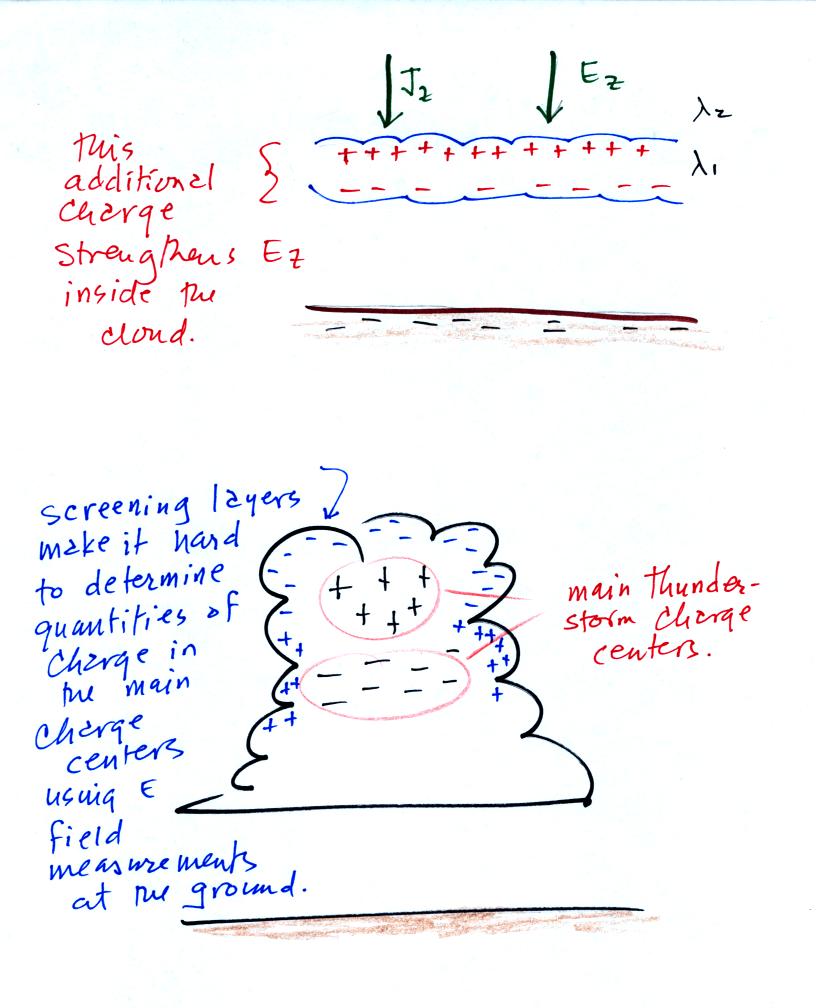 Jz
Ez
λ2
λ1
+ + + + + + + + + + + +
− − − − − − − −
this
additional
charge
strengthens Ez
inside the
cloud.
screening layers
make it hard
to determine
quantities of
charge in
the main
charge
centers
using E
field
measurements
at the ground.
main thunder-
storm charge
centers.